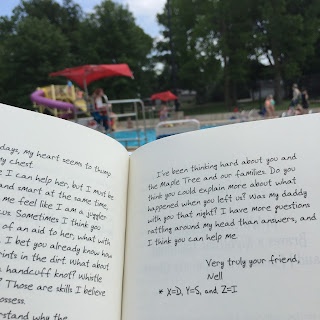 days, my heart seems to thump
my chest.
e I can help her, but I must be
and smart at the same time.
me feel like I am a juggler
cus. Sometimes I think you
of an aid to her, what with
. I bet you already know how
prints in the dirt. What about
a handcuff knot? Whistle
? Those are skills I believe
ossess.
erstand why the
I've been thinking hard about you and
the Maple Tree and our families. Do you
think you could explain more about what
happened when you left us? Was my daddy
with you that night? I have more questions
rattling around my head than answers, and
I think you can help me.
Very truly your friend,
Nell
* X=D, Y=S, and, Z=I